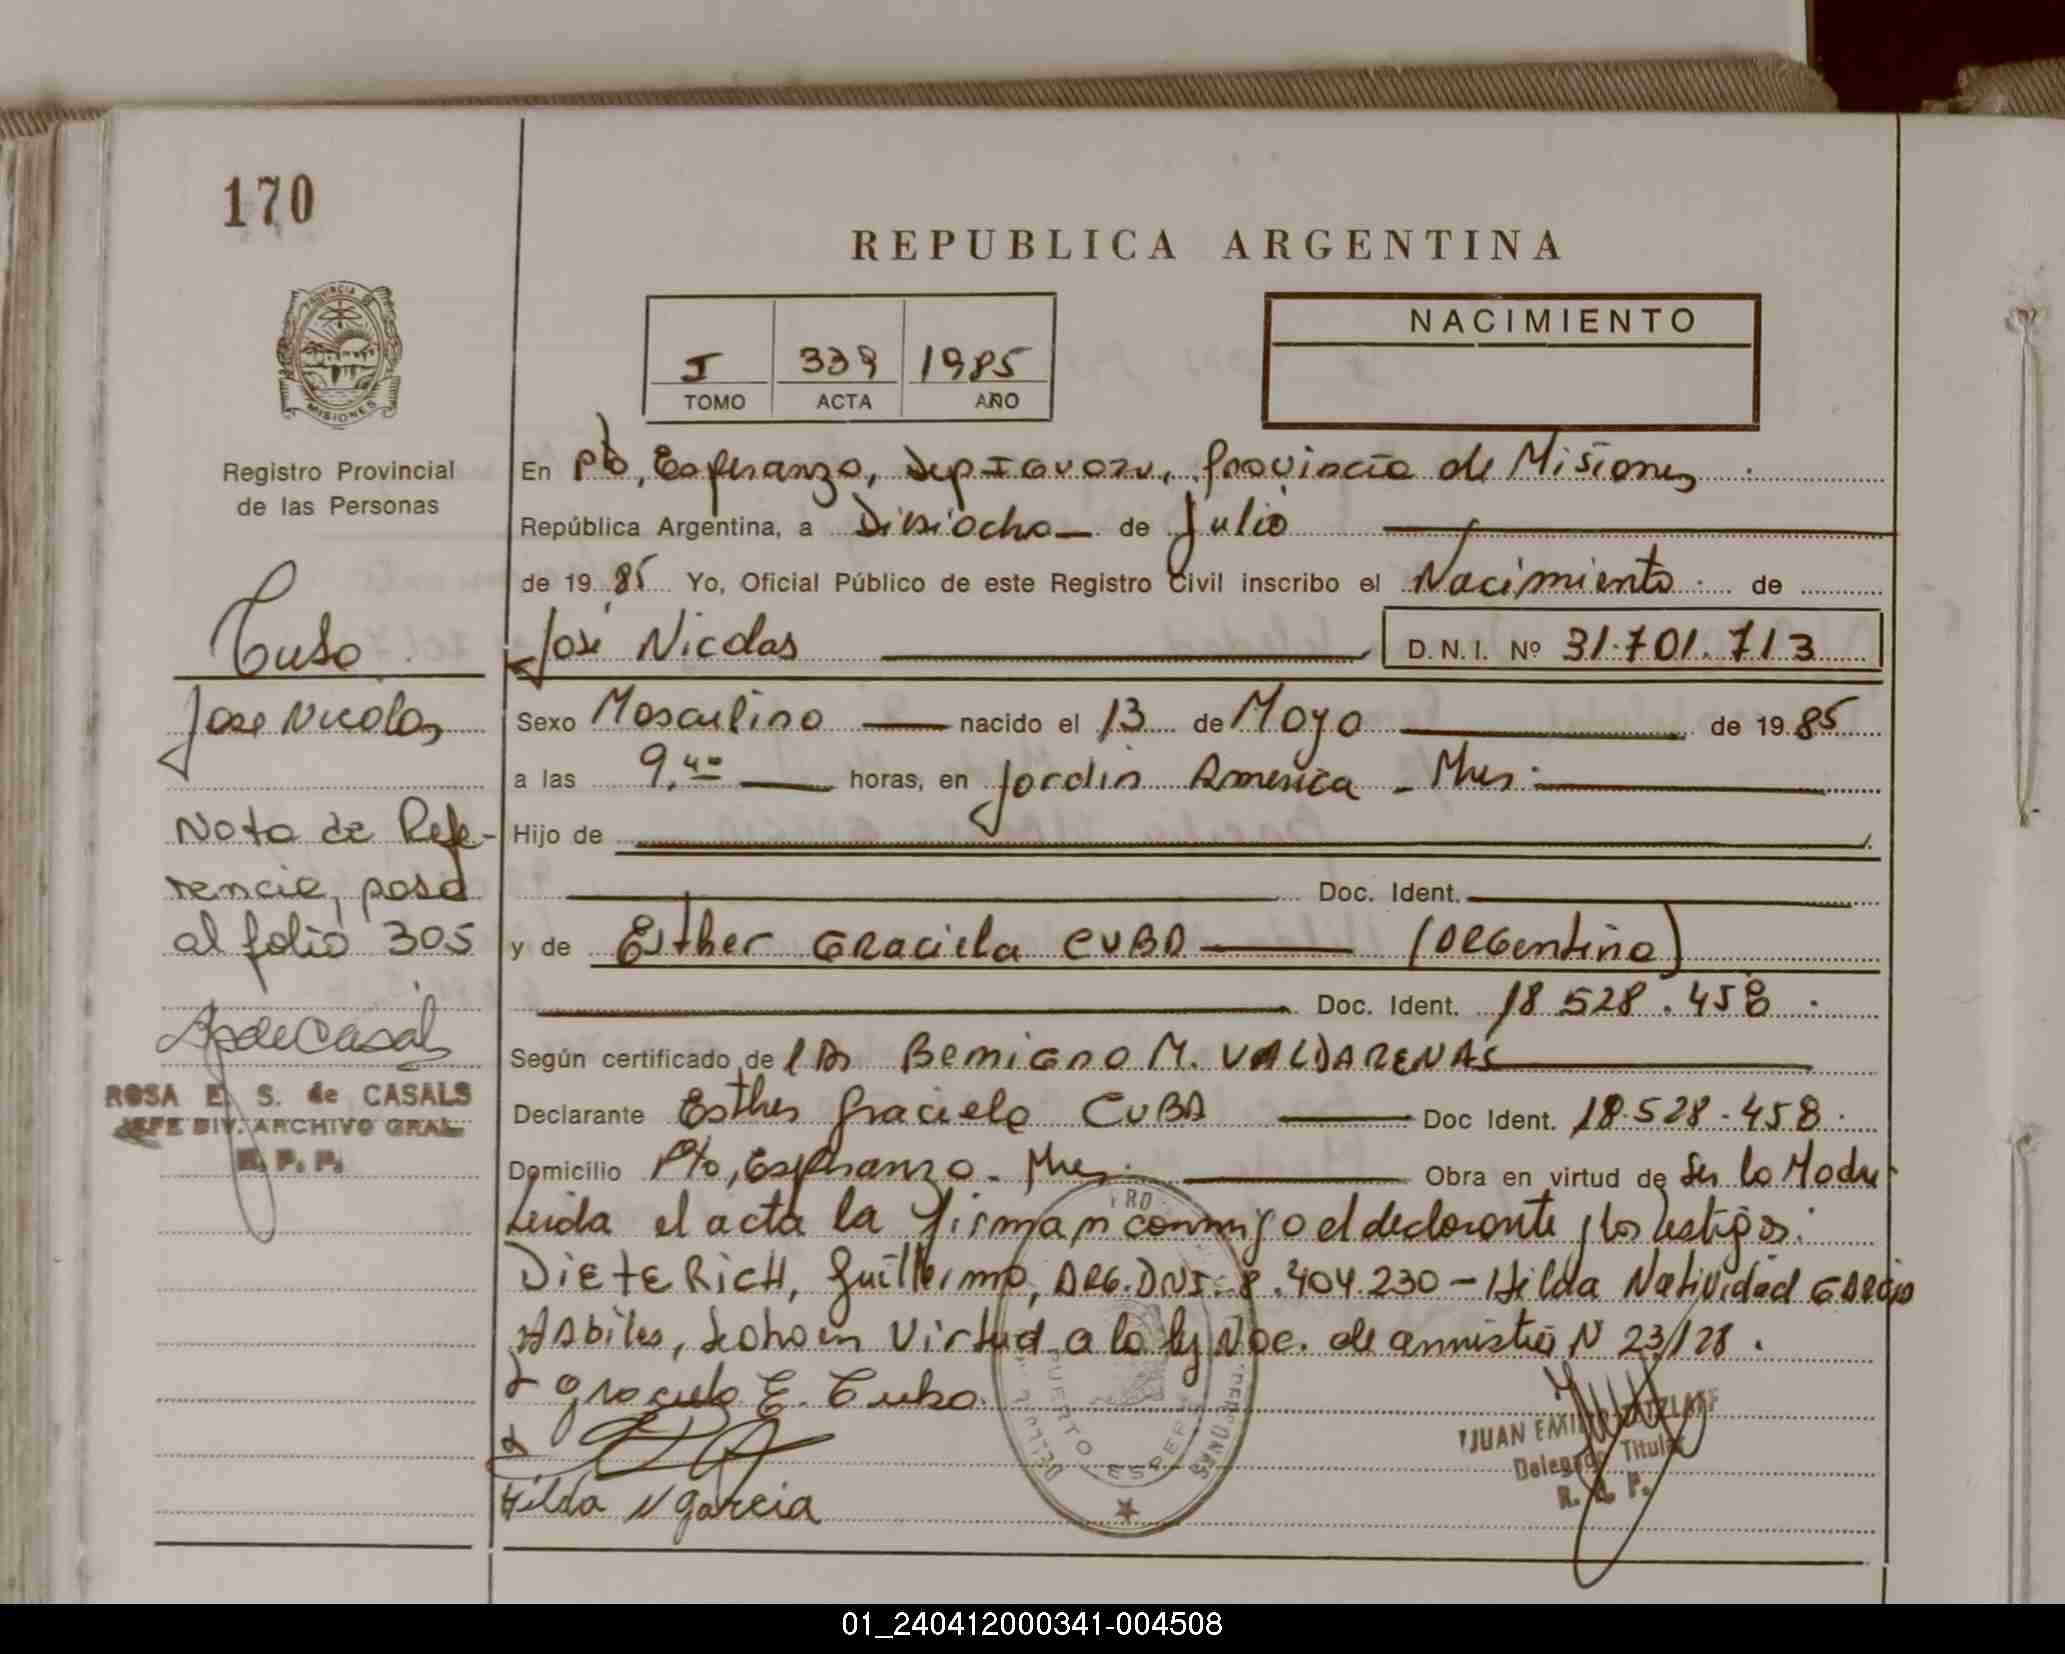 170
REPUBLICA ARGENTINA
PROVINCIA DE
MISIONES
Registro Provincial
de las Personas
I 339 1985
TOMO ACTA AÑO
NACIMIENTO
En Pto, Esperanza, Dep Iguazu, Provincia de Misiones
República Argentina, a Disiocho de Julio
de 19 85 Yo, Oficial Público de este Registro Civil inscribo el Nacimiento de
José Nicolas D.N.I. Nº 31.701.713
Cuba
Jose Nicolas
Sexo Masculino nacido el 13 de Mayo de 19 85
a las 9,40 horas, en Jardin America - Mnes.
Nota de Refe-
rencia, pasa
al folio 305
Hijo de
Doc. Ident.
y de Esther Graciela CUBA (Argentina)
Doc. Ident. 18.528.458
Según certificado de Benigno M. VALDARENAS
Declarante Esther Graciela CUBA Doc Ident. 18.528.458.
Domicilio Pto, Esperanza - Mnes. Obra en virtud de Ser la Madre
Leida el acta la firman conmigo el declarante y los testigos:
DIETERICH, Guillermo, ARG. DNI. 8.404.230 - Hilda Natividad Garcia
Habiles, en Virtud a la ley Nac. de amnistia N 23/128.
Graciela E. Cuba.
Hilda N Garcia
ROSA E. S. de CASALS
JEFE DIV. ARCHIVO GRAL.
R. P. P.
PUERTO ESPER
JUAN EMILIO
Delegado Titular
R. P. P.
01_240412000341-004508